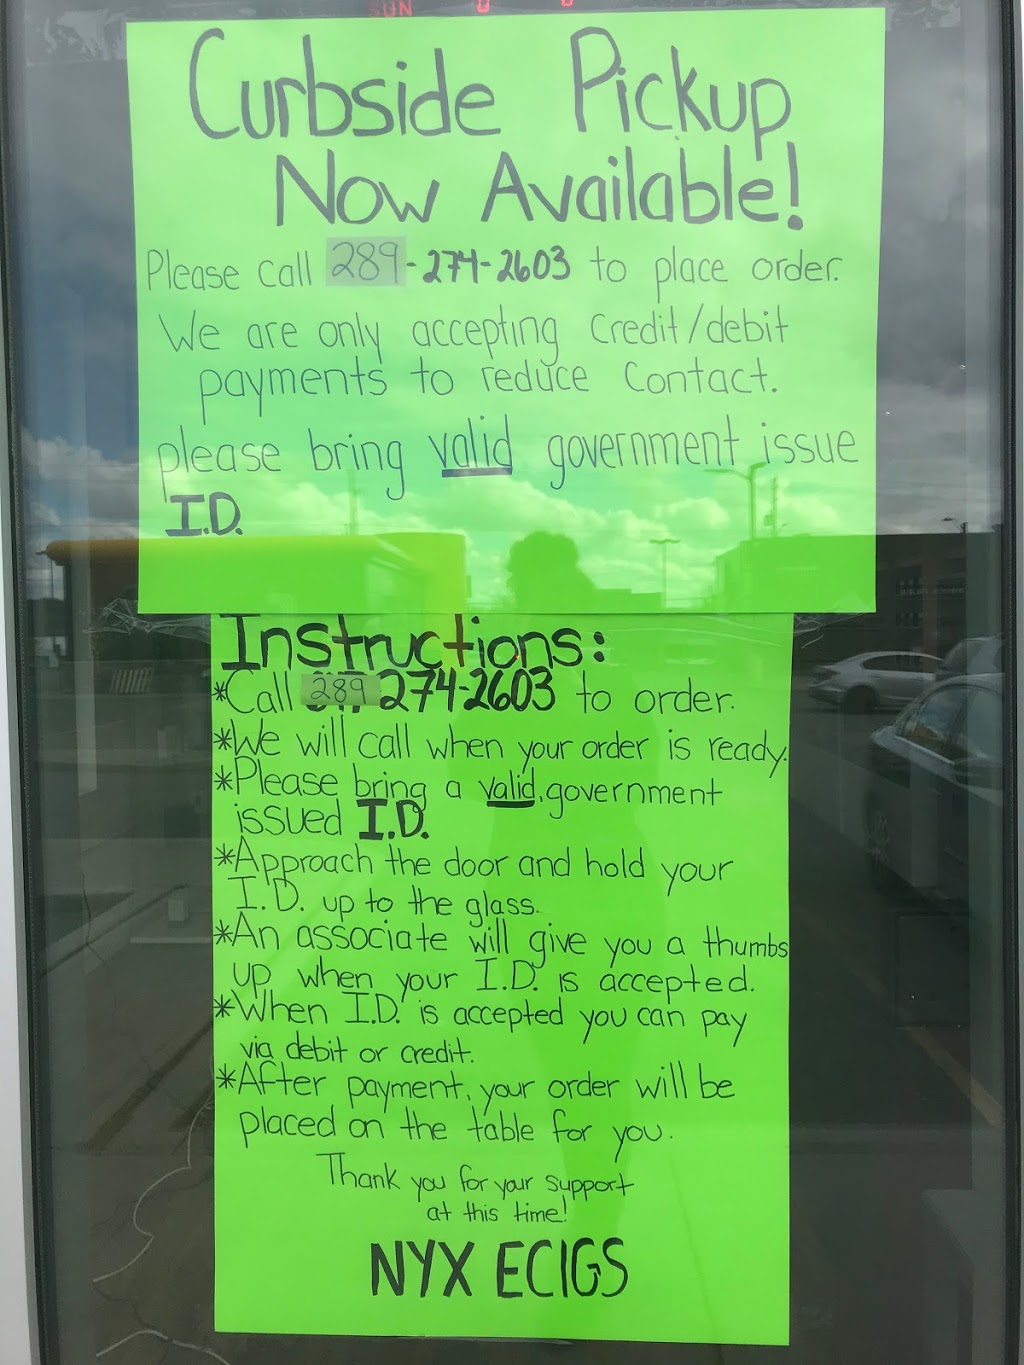 SUN
Curbside Pickup
Now Available!
Please Call 289-274-2603 to place order.
We are only accepting Credit/debit
payments to reduce Contact.
please bring valid government issue
I.D.
Instructions:
*Call 289 274-2603 to order.
*We will call when your order is ready.
*Please bring a valid, government
issued I.D.
*Approach the door and hold your
I.D. up to the glass.
*An associate will give you a thumbs
up when your I.D. is accepted.
*When I.D. is accepted you can pay
via debit or credit.
*After payment, your order will be
placed on the table for you.
Thank you for your support
at this time!
NYX ECIGS